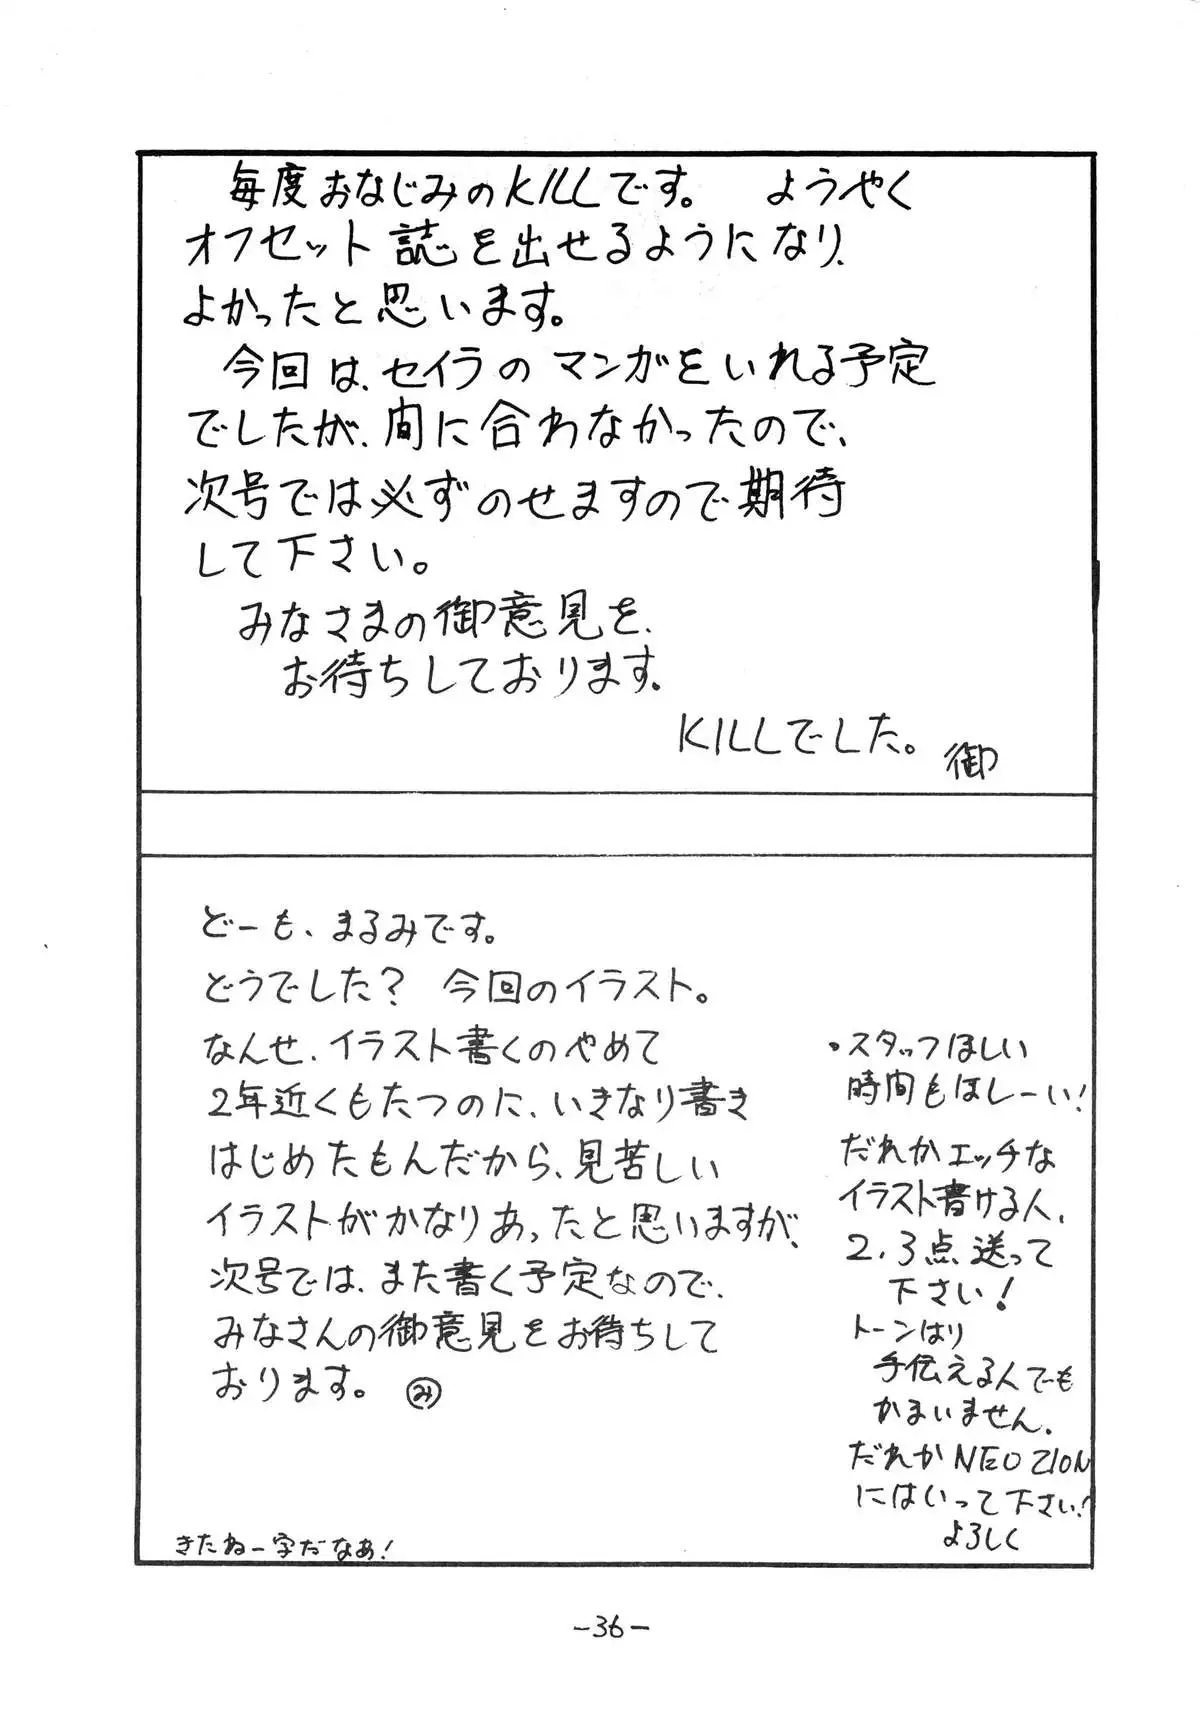 毎度おなじみのKILLです。 ようやく
オフセット誌を出せるようになり、
よかったと思います。
今回は、セイラのマンガをいれる予定
でしたが、間に合わなかったので、
次号では必ずのせますので期待
して下さい。
みなさまの御意見を、
お待ちしております。
KILLでした。
御
どーも、まるみです。
どうでした？ 今回のイラスト。
なんせ、イラスト書くのやめて
2年近くもたつのに、いきなり書き
はじめたもんだから、見苦しい
イラストがかなりあったと思いますが、
次号では、また書く予定なので、
みなさんの御意見をお待ちして
おります。 み
きたねー字だなあ！
・スタッフほしい
時間もほしーい！
だれかエッチな
イラスト書ける人、
2、3点送って
下さい！
トーンはり
手伝える人でも
かまいません。
だれかNEO ZION
にはいって下さい！
よろしく
-36-